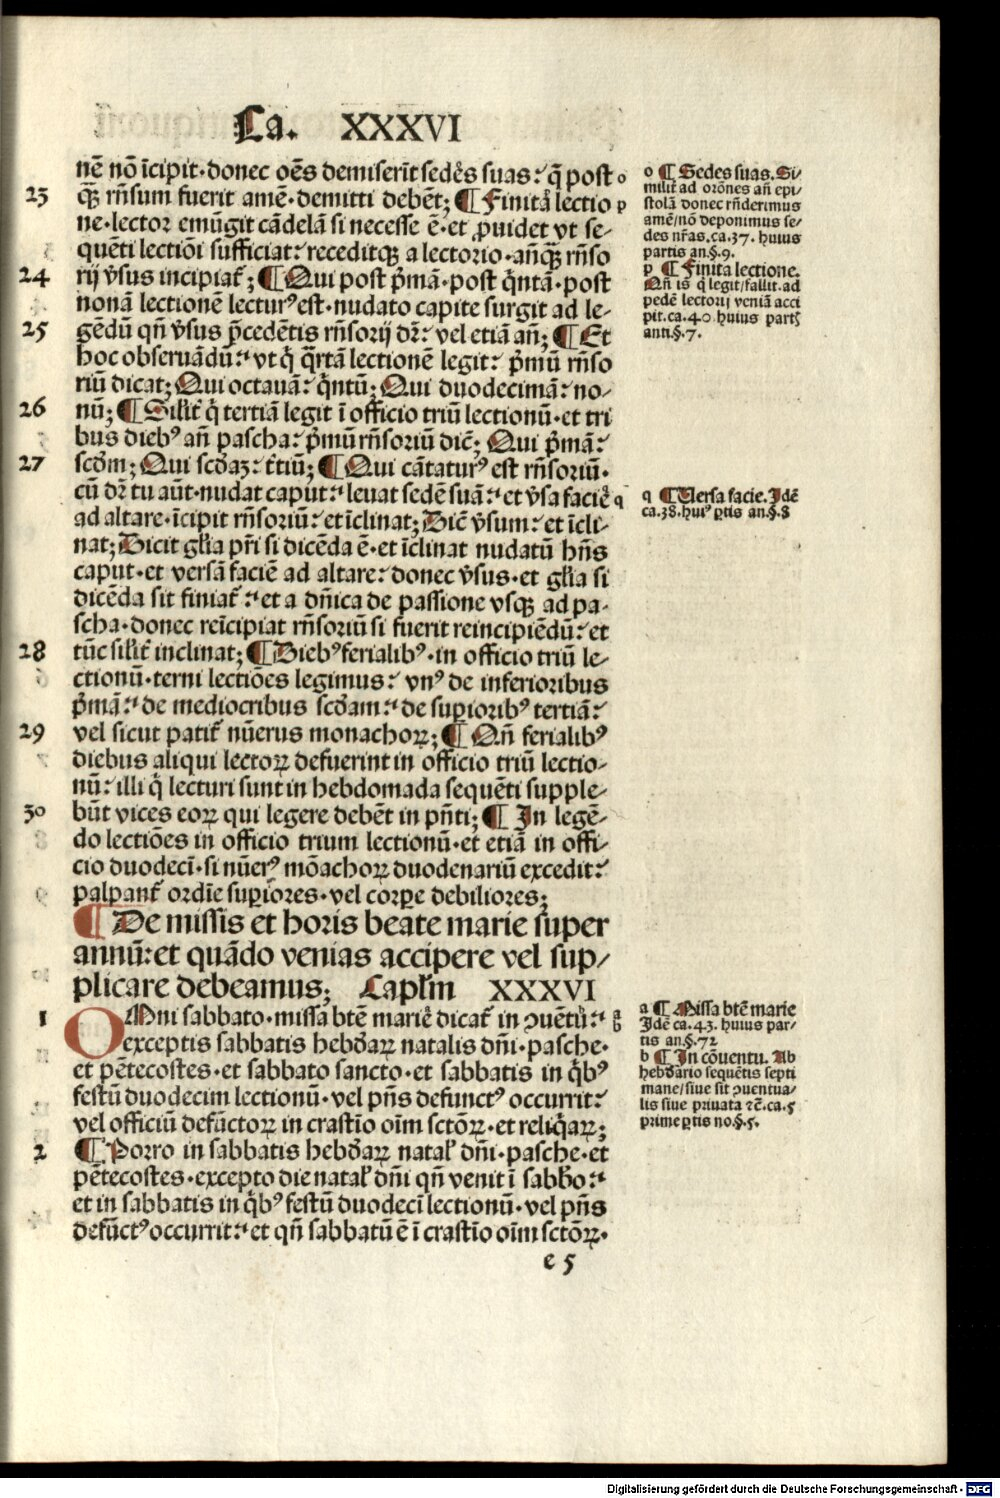 Ca. XXXVI
nē nō īcipit·donec oēs demiserīt sedes suas: q̄ post o
23 q̄ꝫ rn̄sum fuerit amē·demitti debēt; ¶ Finita lectio p
ne·lector emūgit cādelā si necesse ē·et ꝓuidet vt se-
quēti lectiōi sufficiat: receditqꝫ a lectorio·an̄qꝫ rn̄so
24 rij v̄sus incipiat̄; ¶ Qui post p̄mā·post q̄ntā·post
nonā lectionē lecturꝰ est·nudato capite surgit ad le-
25 gēdū qn̄ v̄sus p̄cedētis rn̄sorij dr̄: vel etiā an̄; ¶ Et
hoc obseruādū: vt q̄ q̄rtā lectionē legit: p̄mū rn̄so
riū dicat; Qui octauā: q̄ntū; Qui duodecimā: no-
26 nū; ¶ Silit̄ q̄ tertiā legit ī officio triū lectionū·et tri
bus diebꝰ an̄ pascha: p̄mū rn̄soriū dic̄; Qui p̄mā:
27 scd̄m; Qui scd̄aꝫ: t̄tiū; ¶ Qui cātaturꝰ est rn̄soriū·
cū dr̄ tu aūt·nudat caput: leuat sedē suā: et v̄sa faciē q
ad altare·īcipit rn̄soriū: et īclinat; Dic̄ v̄sum: et īcli-
nat; Dicit gl̄ia pr̄i si dicēda ē·et īclinat nudatū hn̄s
caput·et versā faciē ad altare: donec v̄sus·et gl̄ia si
dicēda sit finiat̄: et a dn̄ica de passione vsqꝫ ad pa-
scha·donec reīcipiat rn̄soriū si fuerit reincipiēdū: et
28 tūc silit̄ inclinat; ¶ Diebꝰ ferialibꝰ·in officio triū le-
ctionū·terni lectiōes legimus: vnꝰ de inferioribus
p̄mā: de mediocribus scd̄am: de suꝑioribꝰ tertiā:
29 vel sicut patit̄ nūerus monachoꝝ; ¶ Qn̄ ferialibꝰ
diebus aliqui lectoꝝ defuerint in officio triū lectio-
nū: illi q̄ lecturi sunt in hebdomada sequēti supple-
30 būt vices eoꝝ qui legere debēt in pn̄ti; ¶ In legē-
do lectiōes in officio trium lectionū·et etiā in offi-
cio duodecī·si nūerꝰ mōachoꝝ duodenariū excedit:
palpant̄ ordīe suꝑiores·vel corꝑe debiliores;
¶ De missis et horis beate marie super
annū: et quādo venias accipere vel sup-
plicare debeamus; Capl̄m XXXVI
1 OMni sabbato·missa btē marie dicat̄ in ꝯuētu: a b
exceptis sabbatis hebd̄aꝝ natalis dn̄i·pasche·
et pētecostes·et sabbato sancto·et sabbatis in q̄bꝰ
festū duodecim lectionū·vel pn̄s defunctꝰ occurrit:
vel officiū defūctoꝝ in crastīo oīm sctōꝝ·et reliq̄aꝝ;
2 ¶ Porro in sabbatis hebd̄aꝝ natal̄ dn̄i·pasche·et
pētecostes·excepto die natal̄ dn̄i qn̄ venit ī sabb̄o:
et in sabbatis in q̄bꝰ festū duodecī lectionū·vel pn̄s
defūctꝰ occurrit: et qn̄ sabbatū ē ī crastīo oīm sctōꝝ·
e 5
o ¶ Sedes suas. Si-
milit̄ ad orōnes an̄ epi-
stolā donec rn̄derimus
amē/nō deponimus se-
des nr̄as. ca. 37. huius
partis an. §. 9.
p ¶ Finita lectione.
Qn̄ is q̄ legit/fallit. ad
pedē lectorij veniā acci
pit. ca. 40 huius partꝭ
anti. §. 7.
q ¶ Versa facie. Idē
ca. 38. huiꝰ ꝑtis an. §. 8
a ¶ Missa btē marie
Idē ca. 43. huius par-
tis an. §. 72
b ¶ In cōuentu. Ab
hebd̄ario sequētis septi
mane/siue sit ꝯuentua-
lis siue priuata ⁊c̄. ca. 5
prime ꝑtis no. §. 5.
Digitalisierung gefördert durch die Deutsche Forschungsgemeinschaft - DFG